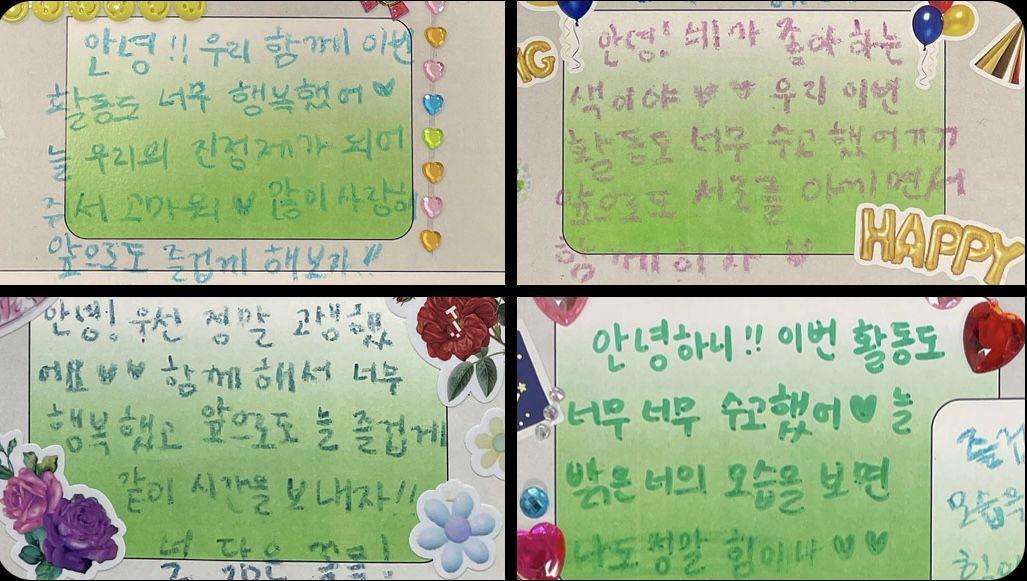 안녕!! 우리 함께 이번
활동도 너무 행복했어 ♥
늘 우리의 진정제가 되어
주서 고마워 ♥ 많이 사랑해
앞으로도 즐겁게 해보자!!
안녕! 네가 좋아하는
색이야 ♥ ♥ 우리 이번
활동도 너무 수고했어ㄲㄲ
앞으로도 서로를 아끼면서
함께하자 ♥
HAPPY
안녕! 우선 정말 고생했
어요 ♥♥ 함께 해서 너무
행복했고 앞으로도 늘 즐겁게
같이 시간을 보내자!!
안녕하니!! 이번 활동도
너무 너무 수고했어 ♥ 늘
밝은 너의 모습을 보면
나도 정말 힘이나 ♥♥
즐겁
모습을